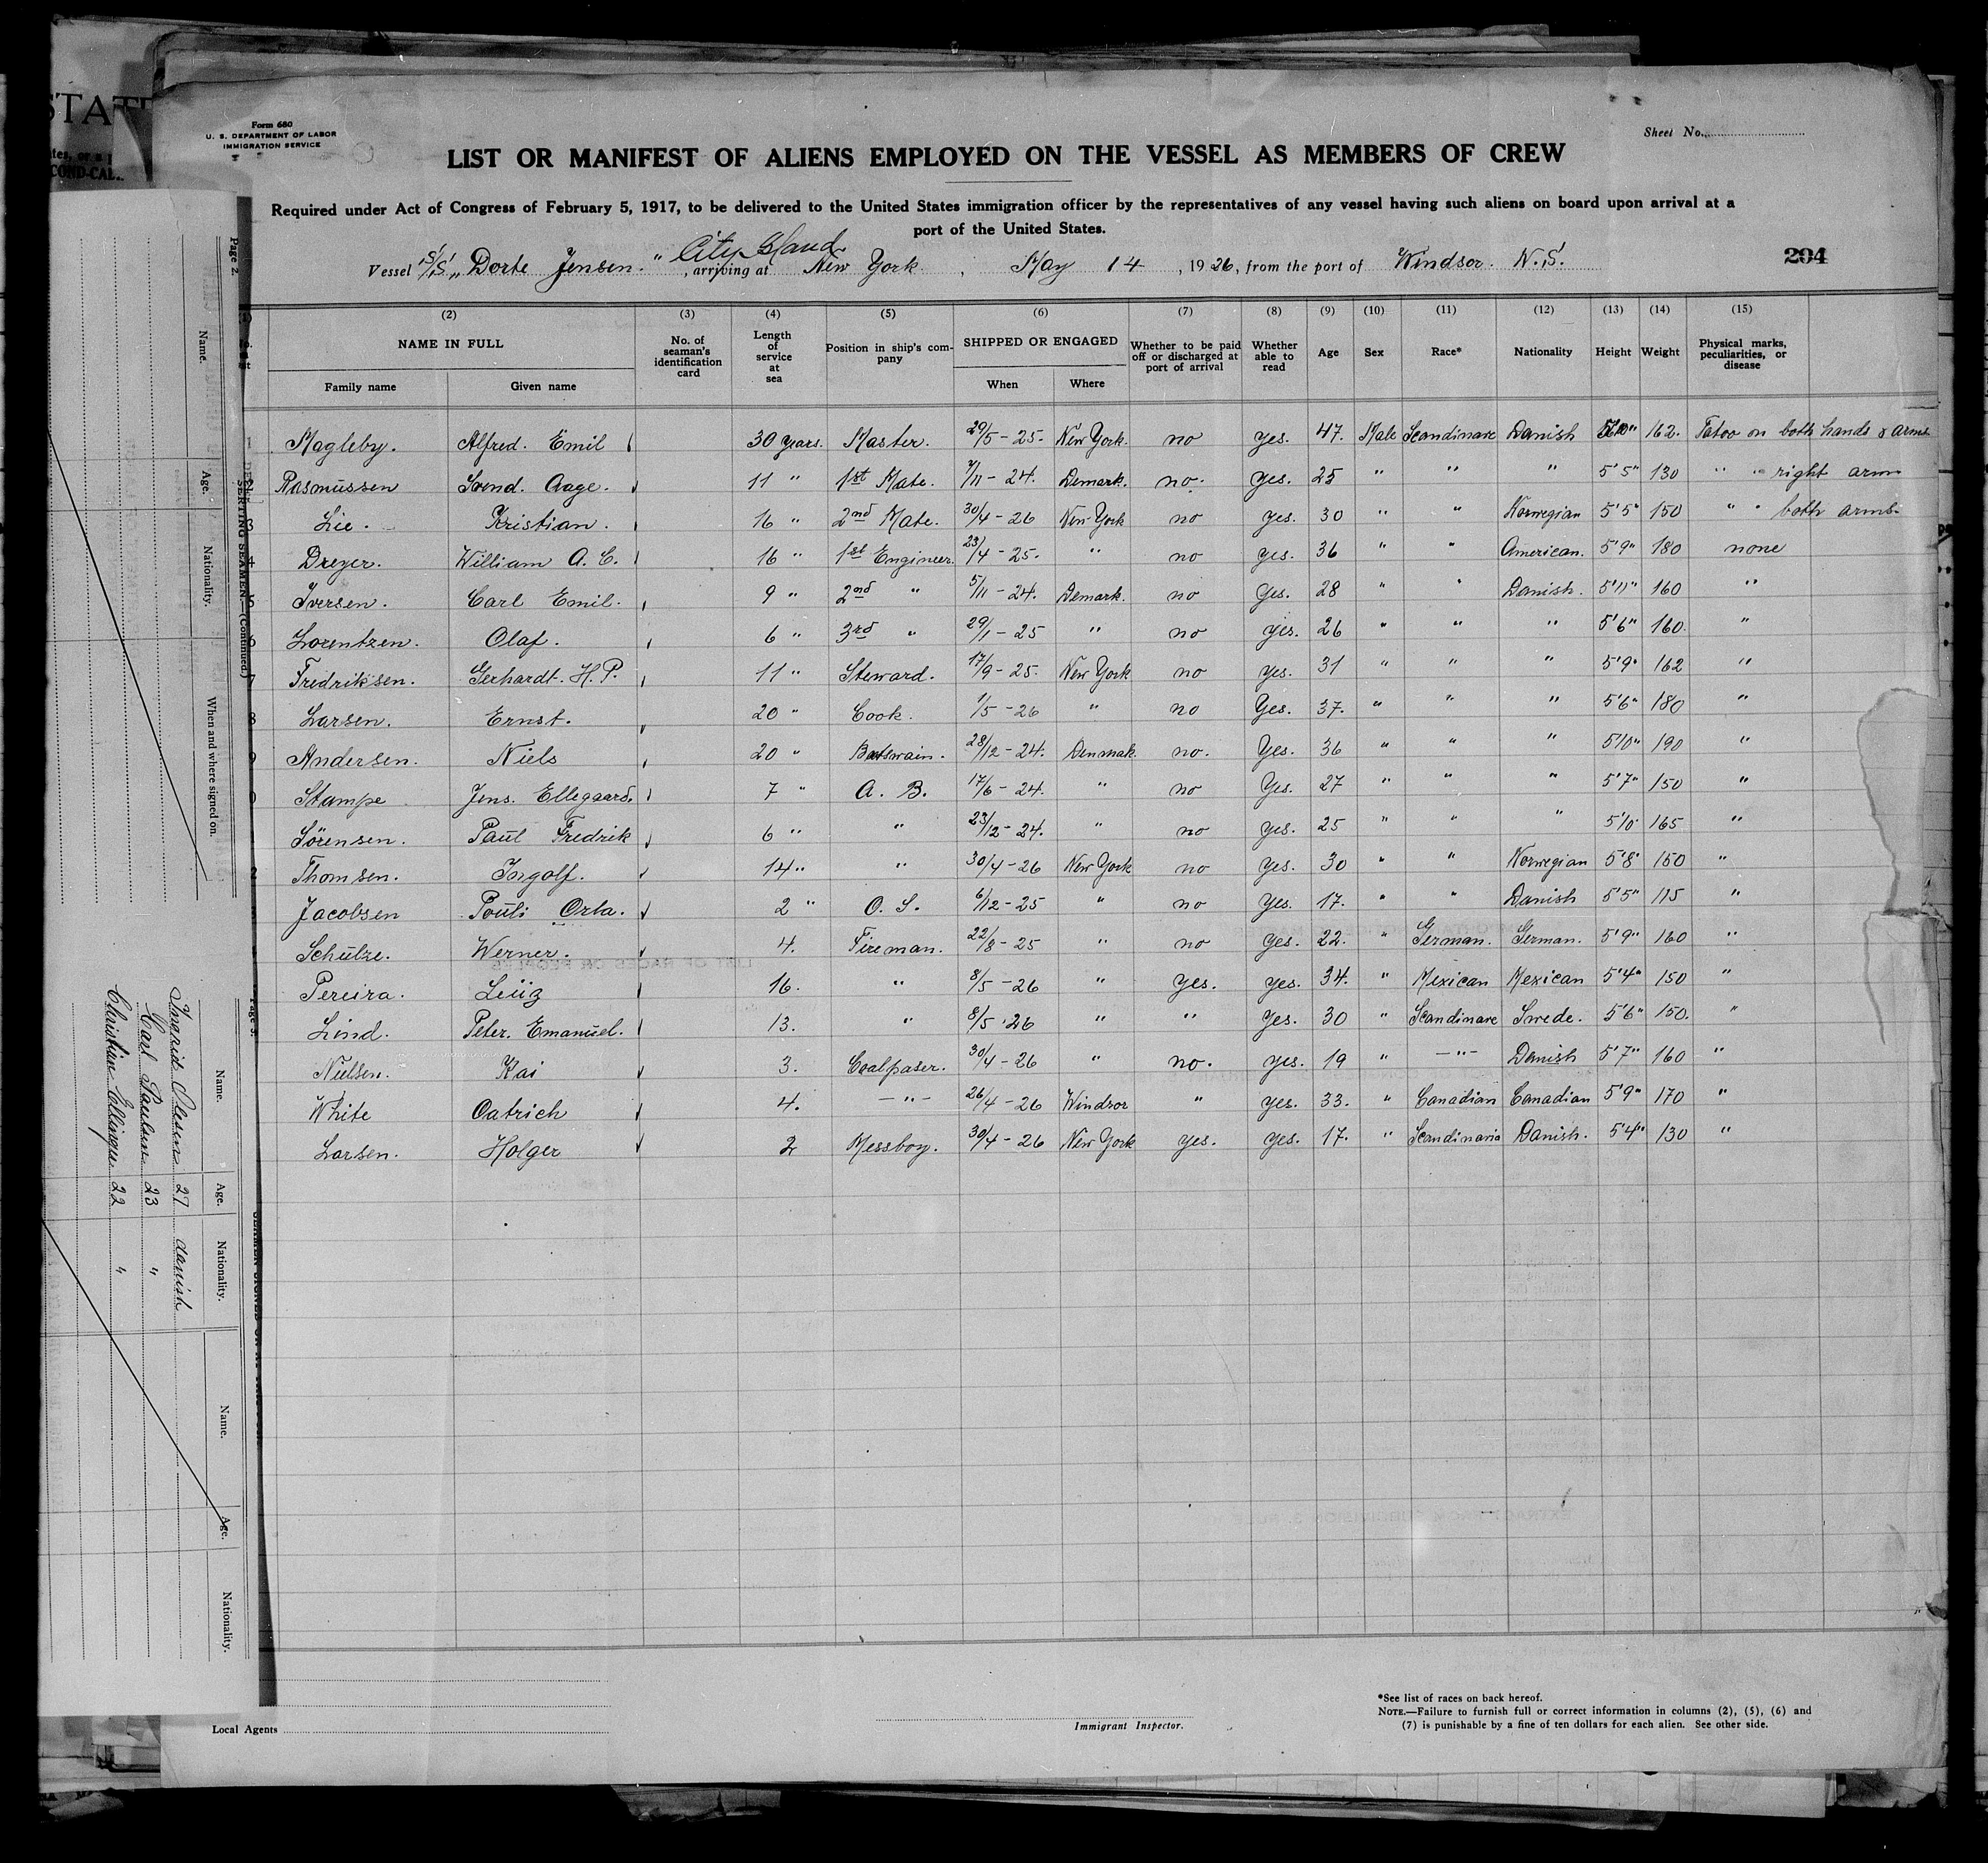 STATE
Form 680
U. S. DEPARTMENT OF LABOR
IMMIGRATION SERVICE
Sheet No.
LIST OR MANIFEST OF ALIENS EMPLOYED ON THE VESSEL AS MEMBERS OF CREW
Required under Act of Congress of February 5, 1917, to be delivered to the United States immigration officer by the representatives of any vessel having such aliens on board upon arrival at a
port of the United States.
City Island
Vessel S/S. „Dorte Jensen.", arriving at New York, May 14, 1926, from the port of Windsor. N.S.
204
(2) (3) (4) (5) (6) (7) (8) (9) (10) (11) (12) (13) (14) (15)
NAME IN FULL No. of seaman's identification card Length of service at sea Position in ship's company SHIPPED OR ENGAGED Whether to be paid off or discharged at port of arrival Whether able to read Age Sex Race* Nationality Height Weight Physical marks, peculiarities, or disease
Family name Given name When Where
1 Magleby. Alfred. Emil 30 years. Master. 29/5 - 25. New York. no yes. 47. Male Scandinave Danish 162. Tatoo on both hands & arms
Rasmussen Svend. Aage. 11 " 1st Mate. 7/11 - 24. Demark. no. yes. 25 " " " 5'5" 130 " " right arm
3 Lie. Kristian. 16 " 2nd Mate. 30/4 - 26 New York no yes. 30 " " Norwegian 5'5" 150 " " both arms.
4 Dreyer. William A. C. 16 " 1st Engineer. 23/4 - 25. " no yes. 36 " " American. 5'9" 180 none
5 Iversen. Carl Emil. 9 " 2nd " 5/11 - 24. Demark. no Yes. 28 " " Danish. 5'11" 160 "
6 Lorentzen. Olaf. 6 " 3rd " 29/1 - 25 " no yes. 26 " " " 5'6" 160. "
7 Fredriksen. Gerhardt. H. P. 11 " Steward. 17/9 - 25. New York no yes. 31 " " " 5'9" 162 "
8 Larsen. Ernst. 20 " Cook. 1/5 - 26 " no Yes. 37. " " " 5'6" 180 "
9 Andersen. Niels 20 " Batswain. 28/12 - 24. Denmak no. Yes. 36 " " " 5'10" 190 "
0 Stampe Jens. Ellegaard. 7 " A. B. 17/6 - 24. " no Yes. 27 " " " 5'7" 150 "
Sörensen. Paul Fredrik 6 " " 23/12 - 24. " no yes. 25 " " " 5'10" 165 "
Thomsen. Ingolf. 14 " " 30/4 - 26 New York no yes. 30 " " Norwegian 5'8" 150 "
Jacobsen Pouli Orla. 2 " O. S. 6/12 - 25 " no yes. 17. " " Danish 5'5" 115 "
Schulze. Werner. 4. Fireman. 22/8 - 25 " no yes. 22. " German. German. 5'9" 160 "
Pereira. Luiz 16. " 8/5 - 26 " yes. yes. 34. " Mexican Mexican 5'4" 150 "
Lind. Peter. Emanuel. 13. " 8/5 - 26 " " yes. 30 " Scandinave Swede. 5'6" 150. "
Nielsen. Kai 3. Coalpaser. 30/4 - 26 " no. yes. 19 " — " — Danish 5'7" 160 "
White Oatrich 4. — " — 26/4 - 26 Windsor " yes. 33. " Canadian Canadian 5'9" 170 "
Larsen. Holger 2 Messboy. 30/4 - 26 New York yes. yes. 17. " Scandinavia Danish. 5'4" 130 "
Local Agents
Immigrant Inspector.
*See list of races on back hereof.
NOTE.—Failure to furnish full or correct information in columns (2), (5), (6) and
(7) is punishable by a fine of ten dollars for each alien. See other side.
Page 2.
DESERTING SEAMEN.—(Continued.)
Name. Age. Nationality. When and where signed on.
Name. Age. Nationality. Name. Age. Nationality.
Ingrid Olesen 27 danish
Carl Paulsen 23 "
Christian Ellingse 22 "